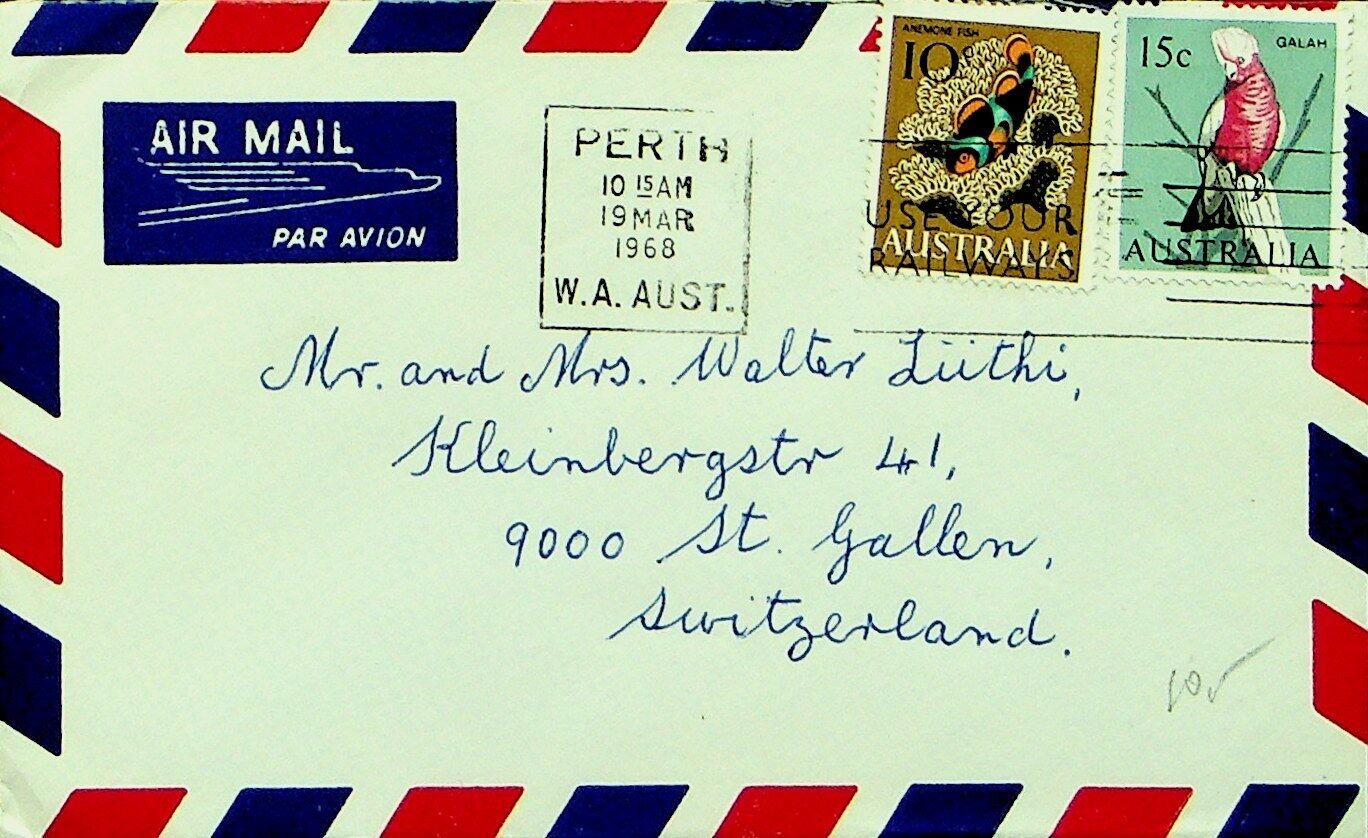 AIR MAIL
PAR AVION
PERTH
10 15 AM
19 MAR
1968
W.A. AUST.
ANEMONE FISH
10c
AUSTRALIA
15c
GALAH
AUSTRALIA
USE YOUR
RAILWAYS
Mr. and Mrs. Walter Lüthi,
Kleinbergstr 41,
9000 St. Gallen,
Switzerland.